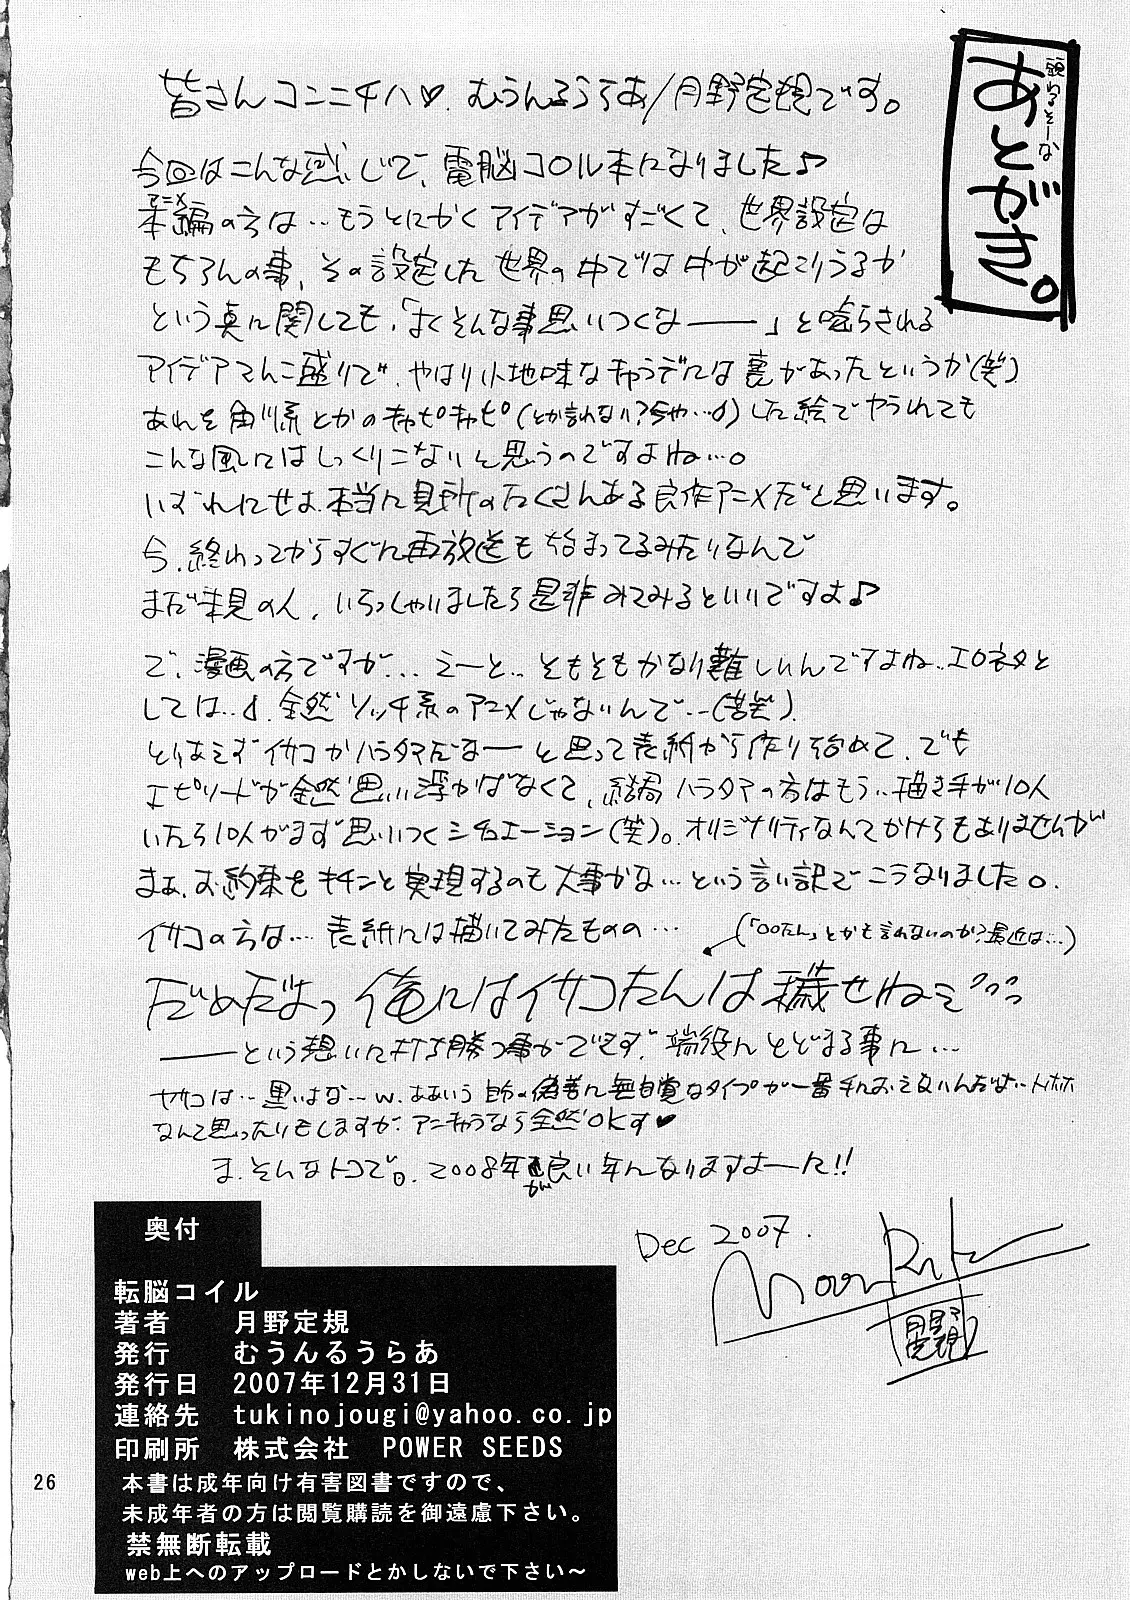 頭わるそーな
あとがき。
皆さんコンニチハ♡. むうんるうらあ/月野定規です。
今回はこんな感じで、電脳コイル本になりました♪
アニメ
本編の方は…もうとにかくアイデアがすごくて、世界設定は
もちろんの事、その設定した世界の中では何が起こりうるか
という点に関しても、「よくそんな事思いつくなー」と唸らされる
アイデアてんこ盛りで、やはり小地味なキャラデには裏があったというか(笑)
あれを角川系とかのキャピキャピ(とか言わない?ちや…)した絵でやられても
こんな風にはしっくりこないと思うのですよね…。
いずれにせよ、本当に見所のたくさんある良作アニメだと思います。
今、終わってからすぐに再放送も始まってるみたいなんで
まだ未見の人、いらっしゃいましたら是非みてみるといいですよ♪
で、漫画の方ですが…えーと…ともともかなり難しいんですよね、エロネタと
しては…。全然ソッチ系のアニメじゃないんで…(苦笑).
とりあえずイサコかハラケンだなーと思って表紙から作り始めて、でも
エピソードが全然思い浮かばなくて、結局
の方はもう、描き手が10人
いたら10人がまず思いつくシチュエーション(笑)。オリジナリティなんてかけらもありませんが
まぁ、お約束をキチンと実現するのも大事かな…という言い訳でこうなりました。
イサコの方は…表紙には描いてみたものの…
(「○○たん」とかも言わないのか?最近は…)
だめだよっ 俺にはイサコたんは穢せねぇ
――という想いに打ち勝つ事ができず、端役にとどまる事に…
ヤサコは…黒いよな…w. ああいう自分の偽善に無自覚なタイプが一番手におえないんだよ…トホホ
なんて思ったりもしますが、アニキャラなら全然OKす♥
ま、そんなトコで。2008年が良い年になりますよーに!!
Dec 2007.
月野定規
奥付
転脳コイル
著者 月野定規
発行 むうんるうらあ
発行日 2007年12月31日
連絡先 tukinojougi@yahoo.co.jp
印刷所 株式会社 POWER SEEDS
本書は成年向け有害図書ですので、
未成年者の方は閲覧購読を御遠慮下さい。
禁無断転載
web上へのアップロードとかしないで下さい～
26